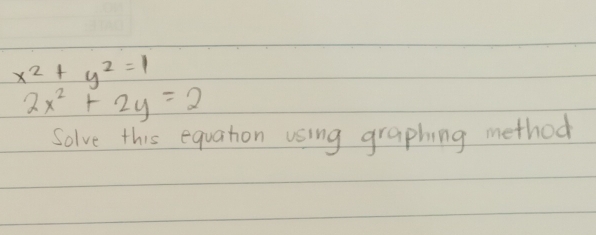 x² + y² = 1
2x² + 2y = 2
Solve this equation using graphing method